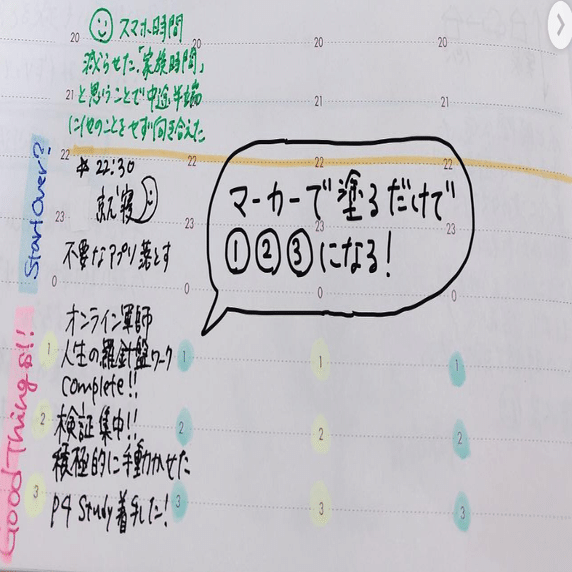 20 20 20 20
スマホ時間
減らせた。「家族時間」
21 21 21
と思うことで中途半端
に他のことをせず向き合えた
Start Over?
22 22 22 22
* 22:30
就寝
23 23 23
不要なアプリ落とす
マーカーで塗るだけで
①②③になる!
0 0 0 0
Good Things!!
オンライン軍師
1 人生の羅針盤ワーク 1 1 1
complete!!
2 検証集中!! 2 2 2
積極的に手動かせた
3 P4 Study着手した! 3 3 3